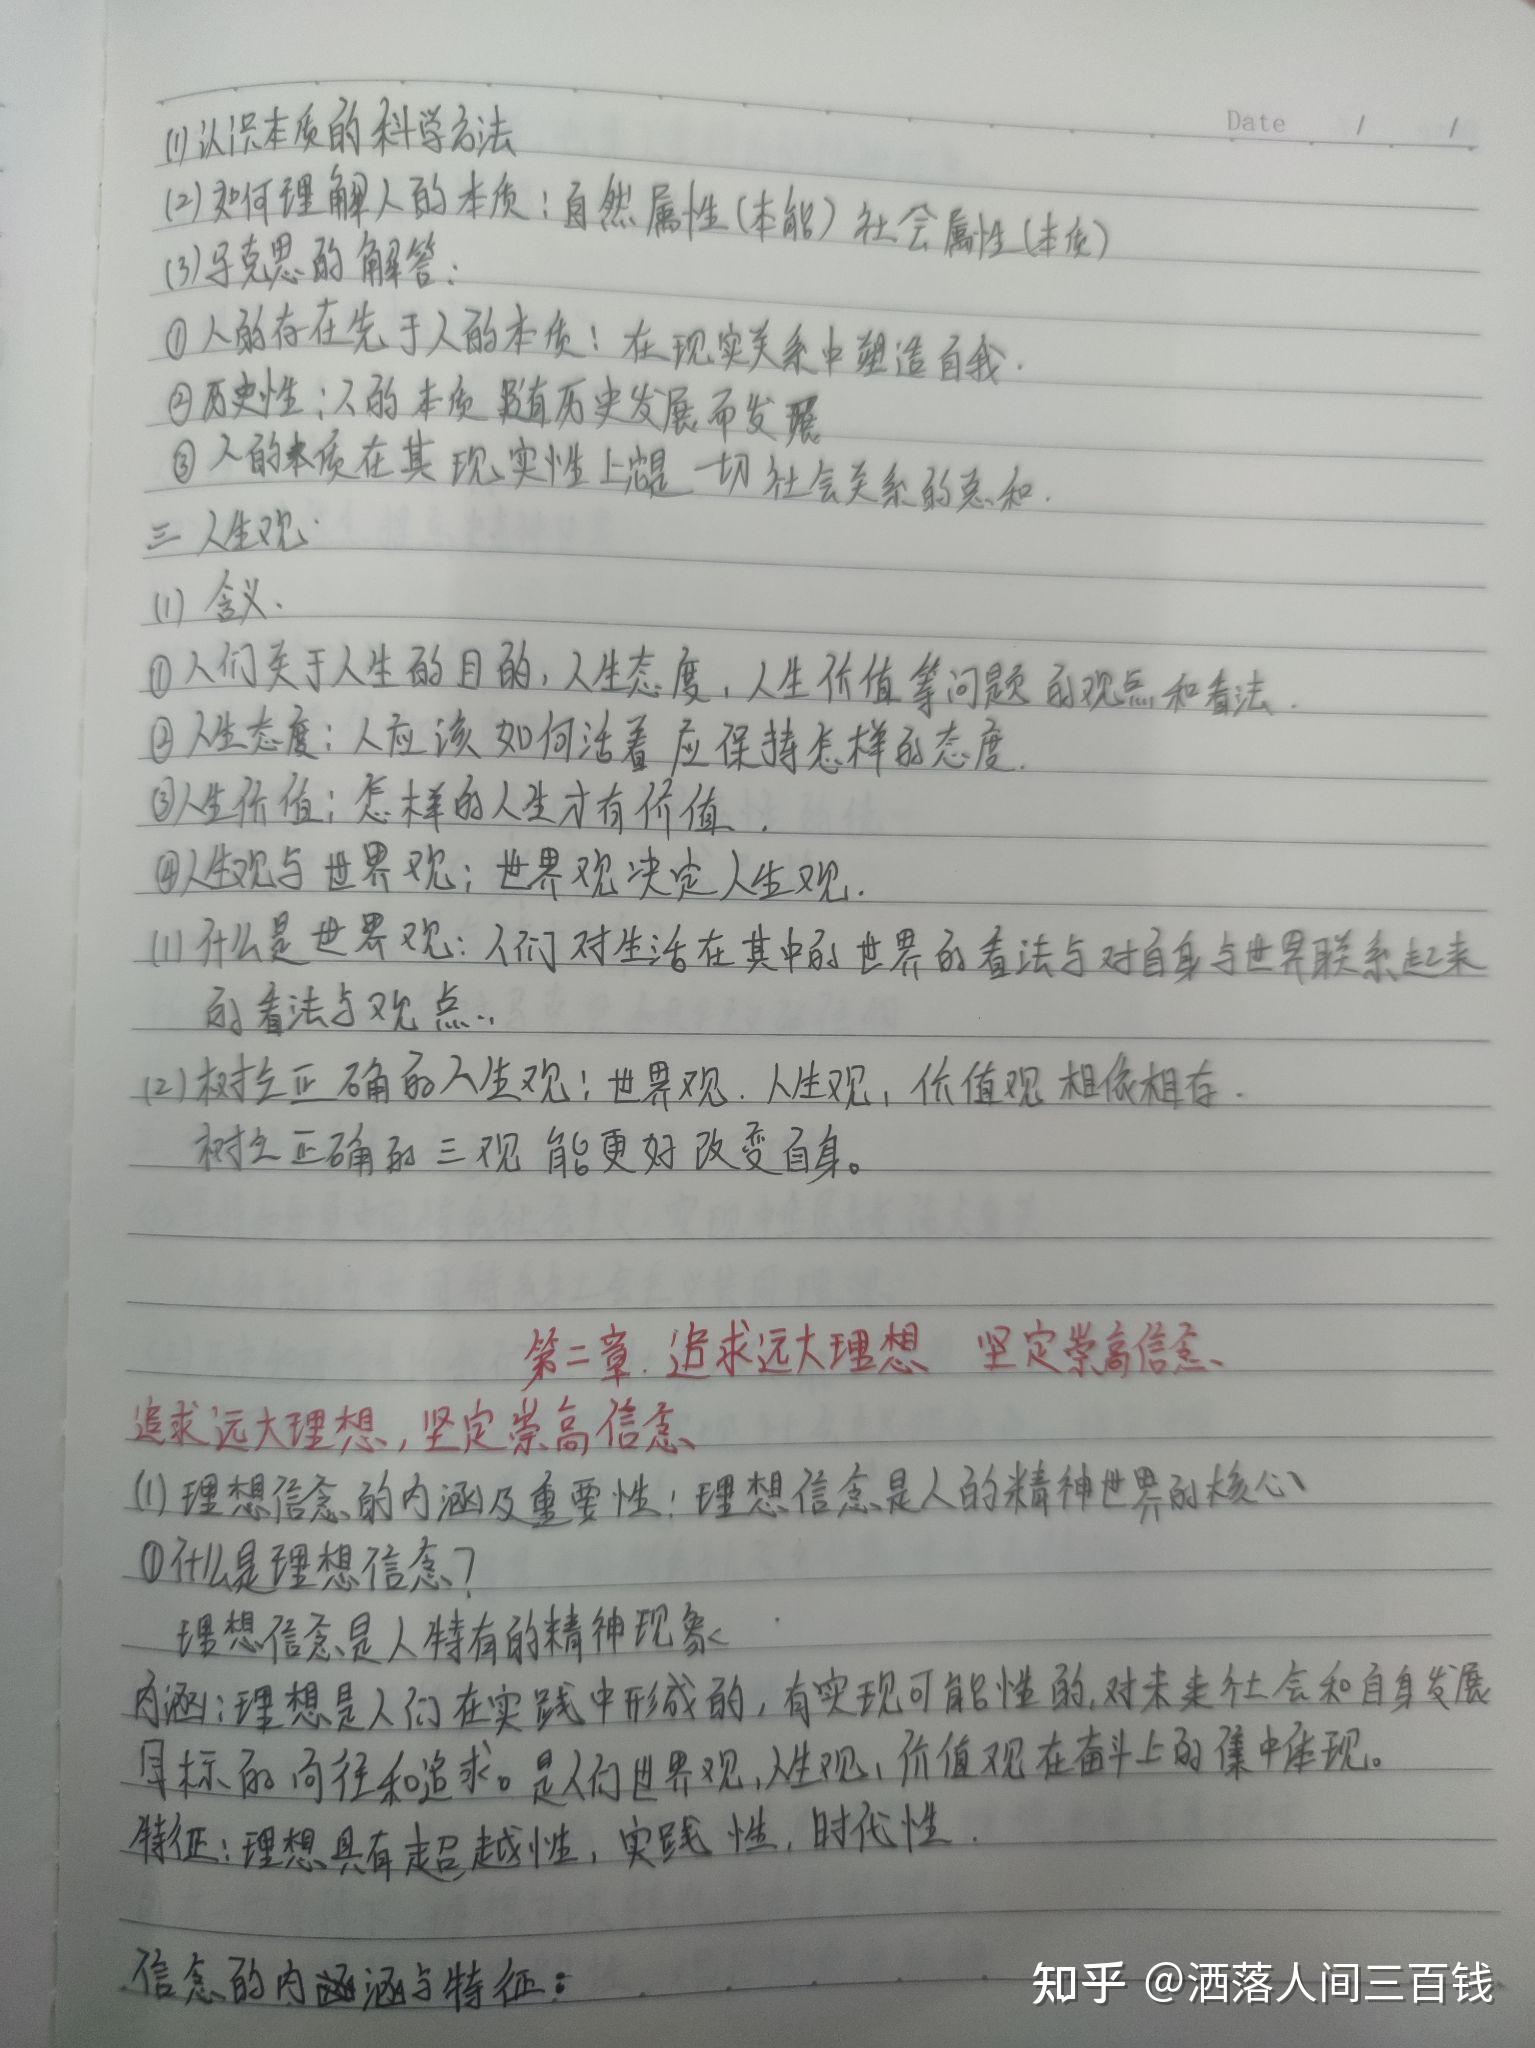 Date / /
(1)认识本质的科学方法
(2)如何理解人的本质:自然属性(本能)社会属性(本质)
(3)马克思的解答:
①人的存在先于人的本质:在现实关系中塑造自我.
②历史性:人的本质随历史发展而发展
③人的本质在其现实性上是一切社会关系的总和.
三 人生观.
(1)含义.
①人们关于人生的目的,人生态度,人生价值等问题的观点和看法.
②人生态度:人应该如何活着应保持怎样的态度.
③人生价值:怎样的人生才有价值.
④人生观与世界观:世界观决定人生观.
(1)什么是世界观:人们对生活在其中的世界的看法与对自身与世界联系起来
的看法与观点..
(2)树立正确的人生观:世界观.人生观,价值观相依相存.
树立正确的三观能更好改变自身。
第二章.追求远大理想 坚定崇高信念
追求远大理想,坚定崇高信念
(1)理想信念的内涵及重要性:理想信念是人的精神世界的核心
①什么是理想信念?
理想信念是人特有的精神现象
内涵:理想是人们在实践中形成的,有实现可能性的,对未来社会和自身发展
目标的向往和追求。是人们世界观,人生观,价值观在奋斗上的集中体现。
特征:理想具有超越性,实践性,时代性.
信念的内涵与特征:
知乎 @洒落人间三百钱